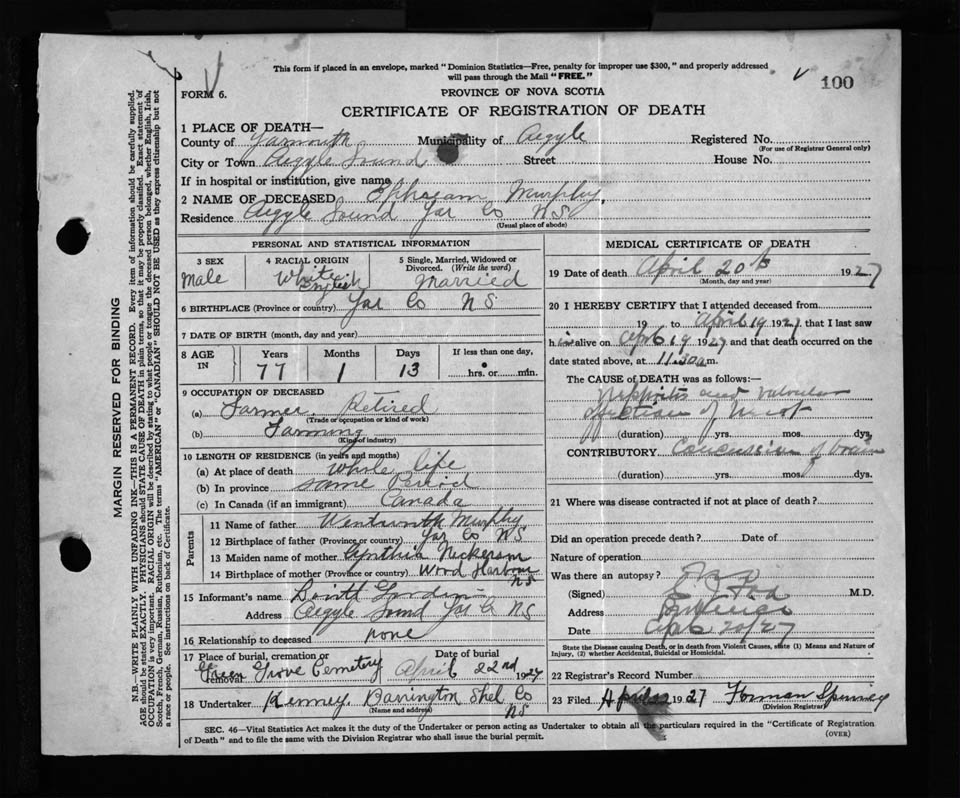 This form if placed in an envelope, marked "Dominion Statistics—Free, penalty for improper use $300," and properly addressed
will pass through the Mail "FREE."
100
FORM 6.
PROVINCE OF NOVA SCOTIA
CERTIFICATE OF REGISTRATION OF DEATH
1 PLACE OF DEATH—
County of Yarmouth Municipality of Argyle Registered No.
(For use of Registrar General only)
City or Town Argyle Sound Street House No.
If in hospital or institution, give name
2 NAME OF DECEASED Murphy,
Residence Argyle Sound Yar Co NS
(Usual place of abode)
PERSONAL AND STATISTICAL INFORMATION
3 SEX 4 RACIAL ORIGIN 5 Single, Married, Widowed or
Divorced. (Write the word)
Male White English Married
6 BIRTHPLACE (Province or country) Yar Co NS
7 DATE OF BIRTH (month, day and year)
8 AGE IN Years Months Days If less than one day,
77 1 13 hrs. or min.
9 OCCUPATION OF DECEASED
(a) Farmer. Retired
(Trade or occupation or kind of work)
(b) Farming
(Kind of industry)
10 LENGTH OF RESIDENCE (in years and months)
(a) At place of death whole life
(b) In province same Period
(c) In Canada (if an immigrant) Canada
Parents
11 Name of father Wentworth Murphy
12 Birthplace of father (Province or country) Yar Co NS
13 Maiden name of mother Cynthia Nickerson
14 Birthplace of mother (Province or country) Wood Harbour
NS
15 Informant's name
Address Argyle Sound Yar Co NS
16 Relationship to deceased none
17 Place of burial, cremation or
removal Date of burial
Green Grove Cemetery April 22nd 1927
18 Undertaker Kenney Barrington Shel Co
(Name and address) NS
MEDICAL CERTIFICATE OF DEATH
19 Date of death April 20th 1927
(Month, day and year)
20 I HEREBY CERTIFY that I attended deceased from
19 to April 19 1927, that I last saw
him alive on Apl 19 1927 and that death occurred on the
date stated above, at 11.30 a m.
The CAUSE of DEATH was as follows:—
Nephritis and valvular
affection of heart
(duration) yrs. mos. dys.
CONTRIBUTORY Concussion of brain
(duration) yrs. mos. dys.
21 Where was disease contracted if not at place of death?
Did an operation precede death? Date of
Nature of operation
Was there an autopsy?
(Signed) M.D.
Address
Date Apl 20/27
State the Disease causing Death, or in death from Violent Causes, state (1) Means and Nature of
Injury, (2) whether Accidental, Suicidal or Homicidal.
22 Registrar's Record Number
23 Filed April 22 1927 Forman Spinney
(Division Registrar)
SEC. 46—Vital Statistics Act makes it the duty of the Undertaker or person acting as Undertaker to obtain all the particulars required in the "Certificate of Registration
of Death" and to file the same with the Division Registrar who shall issue the burial permit.
(OVER)
MARGIN RESERVED FOR BINDING
N.B.—WRITE PLAINLY WITH UNFADING INK—THIS IS A PERMANENT RECORD. Every item of information should be carefully supplied.
AGE should be stated EXACTLY. PHYSICIANS should STATE CAUSE OF DEATH in plain terms, so that it may be properly classified. Exact statement of
OCCUPATION is very important. RACIAL ORIGIN will be described by stating to what people or tongue the deceased person belonged, whether English, Irish,
Scotch, French, German, Russian, Ruthenian, etc. The terms "AMERICAN" or "CANADIAN" SHOULD NOT BE USED as they express citizenship but not
a race or people. See instructions on back of Certificate.